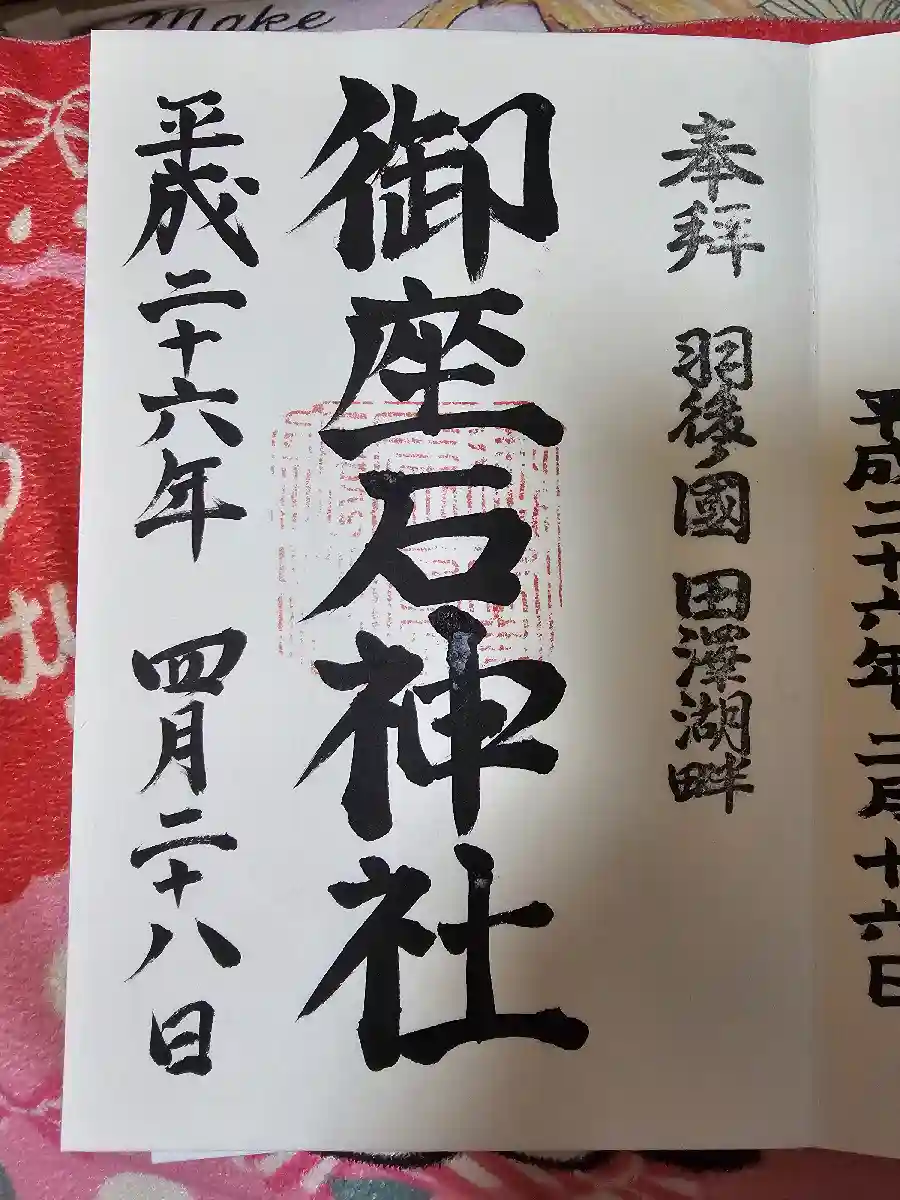 Make
平成二十六年二月十六日
奉拝 羽後國 田澤湖畔
御座石神社
平成二十六年 四月二十八日